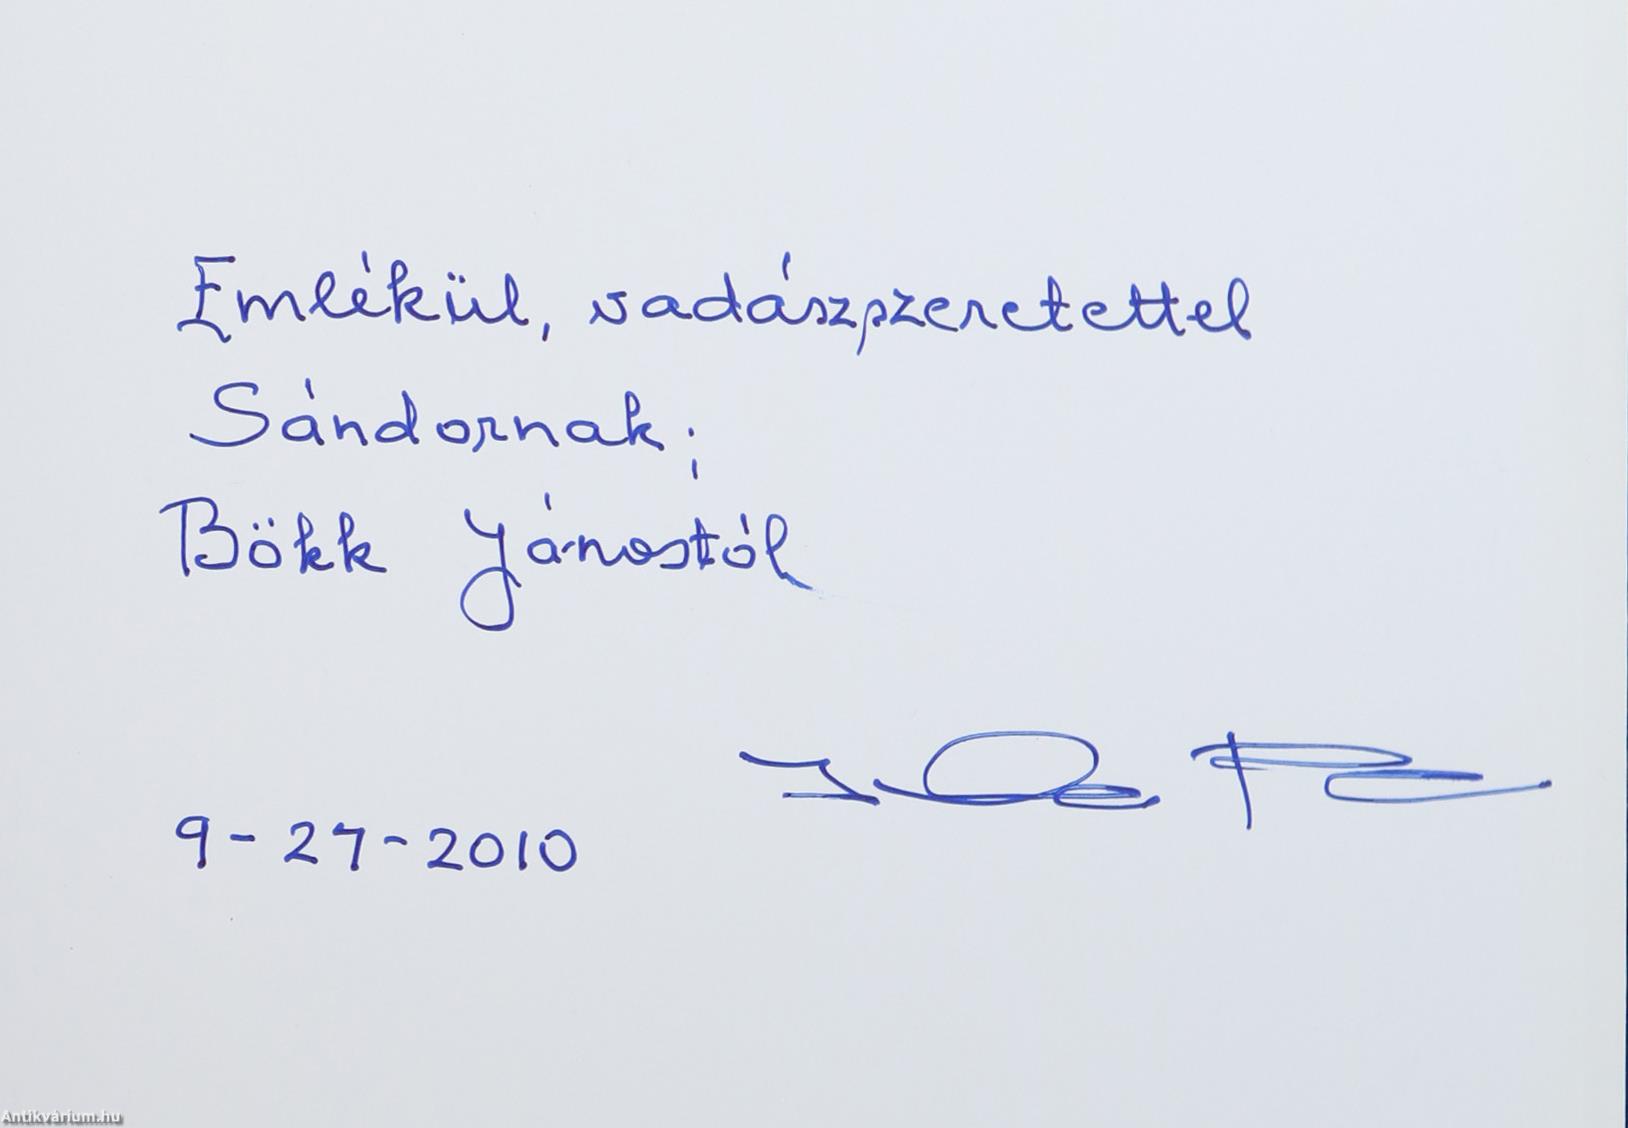 Emlékül, vadászszeretettel
Sándornak;
Bökk Jánostól
9-27-2010
Antikvárium.hu